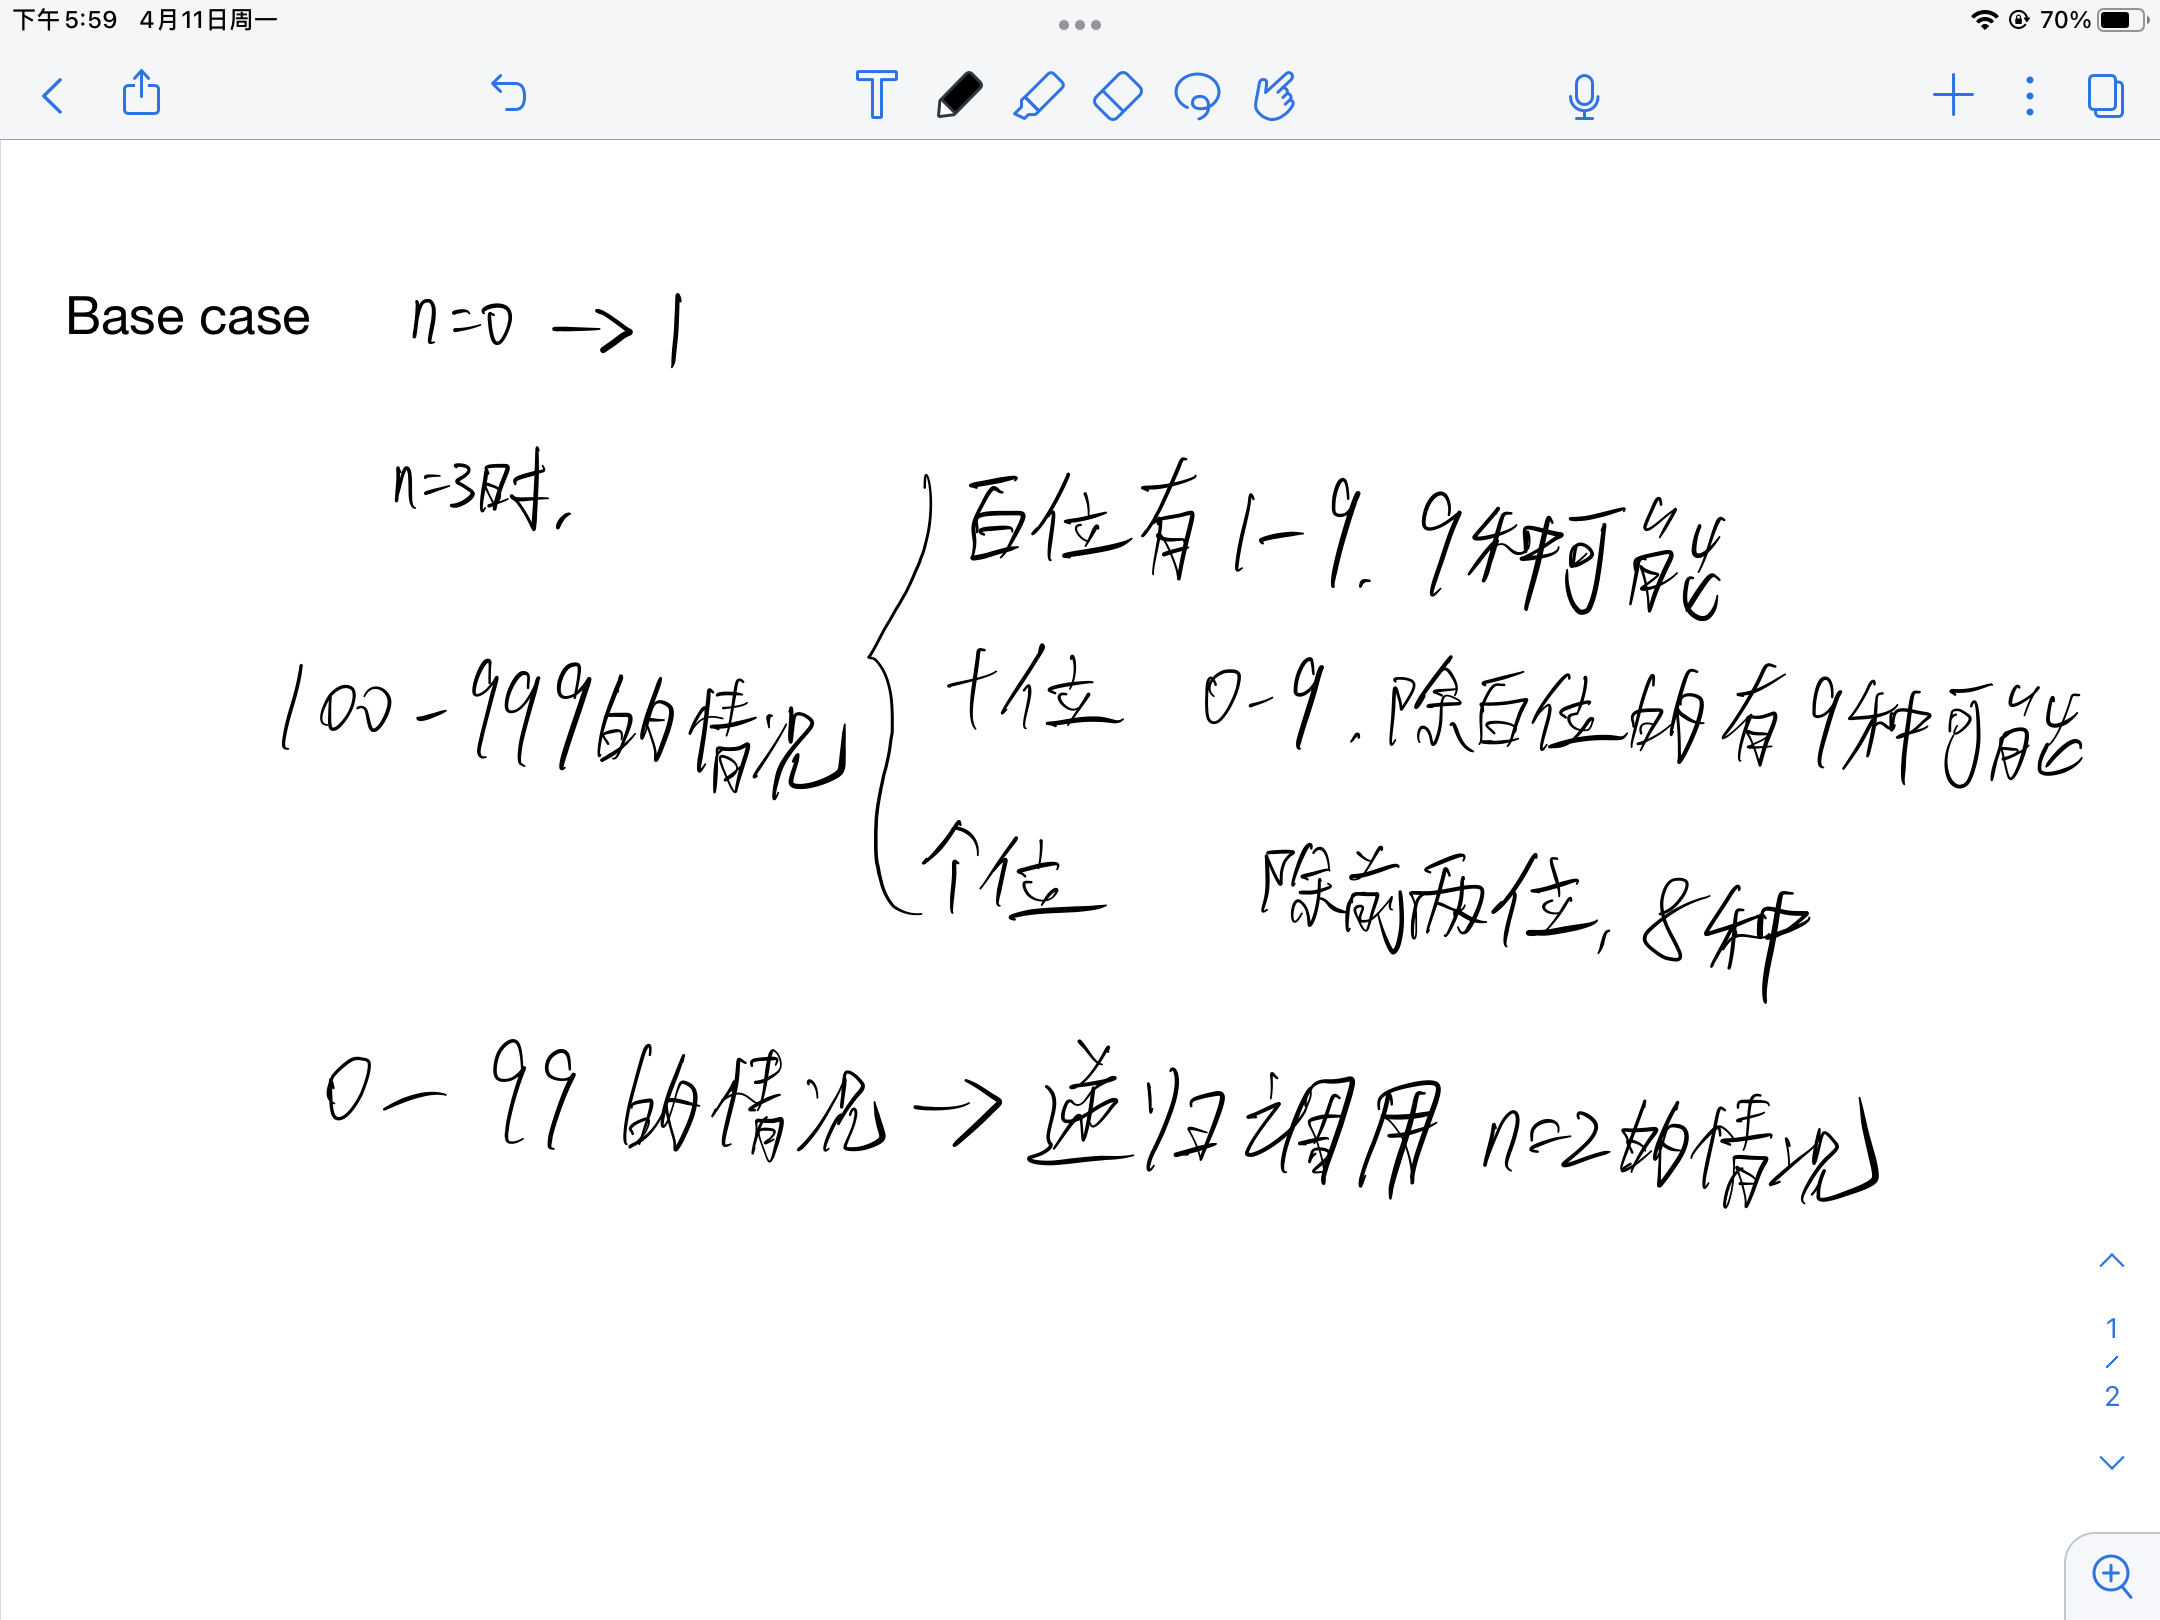 下午5:59 4月11日周一
70%
Base case n=0 → 1
n=3时,
百位有 1-9. 9种可能
100-999的情况
十位 0-9. 除百位的有9种可能
个位 除前两位, 8种
0-99 的情况 → 递归调用 n=2的情况
1
/
2